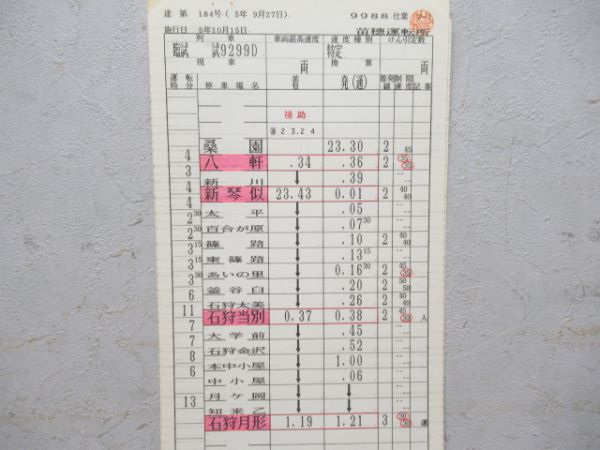 達 第 184号 ( 5年 9月27日) 9988 仕業
施行日 5年10月15日 苗穂運転所
列車 車両最高速度 速度種別 けん引定数
臨試 試9299D 特定
現車 両 換算 両
運転時分 停車場名 着 発(通) 着発線 制限速度 記事
補助
㊢ 23.24
桑園 23.30 2 45
4
八軒 .34 .36 2 35 35
3
新川 .39
4
新琴似 23.43 0.01 2 40 40
4
太平 .05
2 30
百合が原 .07 30
2 30
篠路 .10 2 40 40
3 15
東篠路 .13 15
3 15
あいの里 0.16 30 2 45 35
3
釜谷臼 .20 2 50 50
6
石狩太美 .26 2 40 40
11
石狩当別 0.37 0.38 2 45 30 入
7
大学前 .45
7
石狩金沢 .52
8
本中小屋 1.00
6
中小屋 .06
月ケ岡
13
知来乙
石狩月形 1.19 1.21 3 30 30 運